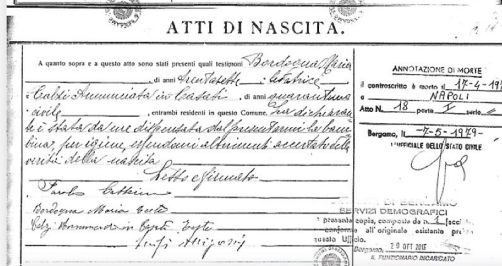 ATTI DI NASCITA.
A quanto sopra e a questo atto sono stati presenti quali testimoni Bordogna Maria
, di anni trentasette, ostetrice
Calzi Annunciata in Casati, di anni quarantuno
civile, entrambi residenti in questo Comune. La dichiarante
è stata da me dispensata dal presentarmi la bam-
bina, per igiene, essendomi altrimenti accertato della
verità della nascita
Letto e firmato
Bordogna Maria Teste
Calzi Annunciata in Casati Teste
Luigi Arrigoni
ANNOTAZIONE DI MORTE
Il controscritto è morto il 17-4-197
NAPOLI
Atto N. 18 parte I serie
Bergamo, -7-5-1979-
L'UFFICIALE DELLO STATO CIVILE
DI BERGAMO
SERVIZI DEMOGRAFICI
presente copia, composta da n. 1
conforme all'originale esistente presso
questo Ufficio.
Bergamo, 29 OTT 2015
IL FUNZIONARIO INCARICATO